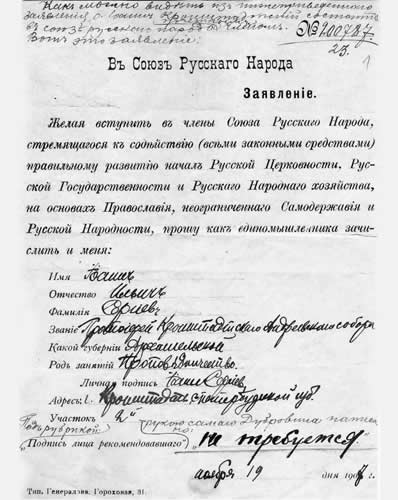 Какъ можно видѣть изъ нижеприведенного
заявленія о. Іоаннъ Кронштадтскій состоитъ
въ союзѣ русскаго народа членом.
Вотъ это заявленіе:
№ 200787
23.
1
Въ Союзъ Русскаго Народа
Заявленіе.
Желая вступить въ члены Союза Русскаго Народа,
стремящагося къ содѣйствію (всѣми законными средствами)
правильному развитію началъ Русской Церковности, Рус-
ской Государственности и Русскаго Народнаго хозяйства,
на основахъ Православія, неограниченнаго Самодержавія и
Русской Народности, прошу какъ единомышленника зачи-
слить и меня:
Имя Іоаннъ
Отчество Ильичъ
Фамилія Сергіевъ
Званіе Протоіерей Кронштадтскаго Андреевскаго собора
Какой губерніи Архангельской
Родъ занятій Проповѣдничество.
Личная подпись Іоаннъ Сергіевъ
Адресъ: г. Кронштадтъ С.петербургской губ.
Участокъ 2й
Подъ рубрикой рукою самаго Дубровина
„Подпись лица рекомендовавшаго" „не требуется".
ноября 19 дня 190
Тип. Генералова. Гороховая, 31.